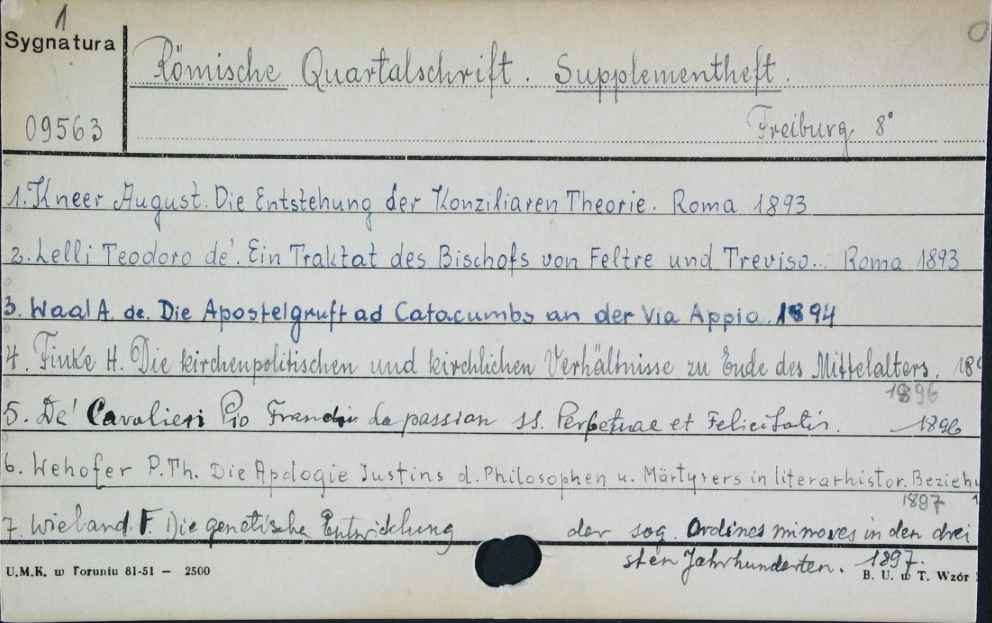 1
Sygnatura
Römische Quartalschrift. Supplementheft.
09563
Freiburg 8°
1. Kneer August. Die Entstehung der Konziliaren Theorie. Roma 1893
2. Lelli Teodoro de'. Ein Traktat des Bischofs von Feltre und Treviso... Roma 1893
3. Waal A. de. Die Apostelgruft ad Catacumbs an der Via Appia. 1894
4. Finke H. Die kirchenpolitischen und kirchlichen Verhältnisse zu Ende des Mittelalters. 189
1896
5. De' Cavalieri Pio La passion SS. Perpetuae et Felicitatis. 1896
6. Wehofer P.Th. Die Apologie Justins d. Philosophen u. Märtyrers in literarhistor. Beziehu
1897
7. Wieland F. Die genetische Entwicklung der sog. Ordines minores in den drei
sten Jahrhunderten. 1897.
U.M.K. w Toruniu 81-51 — 2500
B. U. w T. Wzór